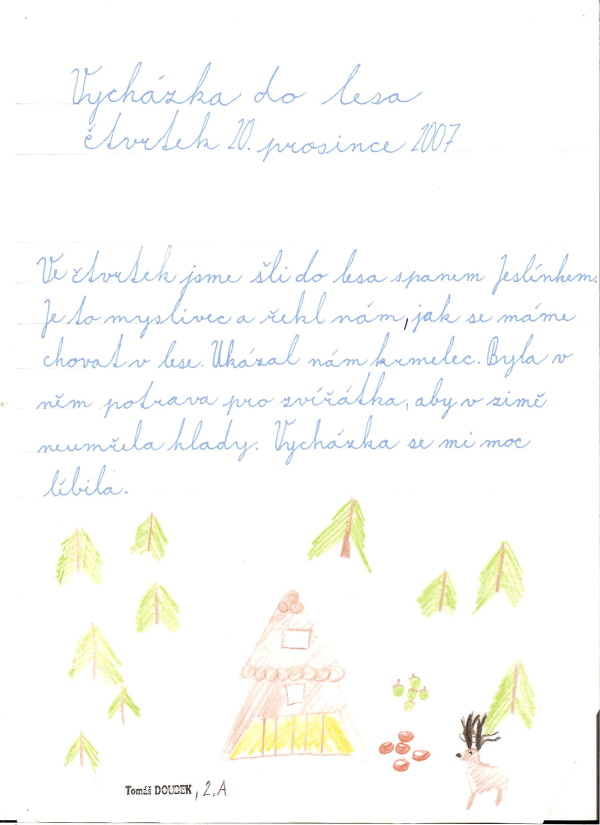 Vycházka do lesa
čtvrtek 20. prosince 2007
Ve čtvrtek jsme šli do lesa s panem Jeslínkem.
Je to myslivec a řekl nám, jak se máme
chovat v lese. Ukázal nám krmelec. Byla v
něm potrava pro zvířátka, aby v zimě
neumřela hlady. Vycházka se mi moc
líbila.
Tomáš DOUBEK, 2.A